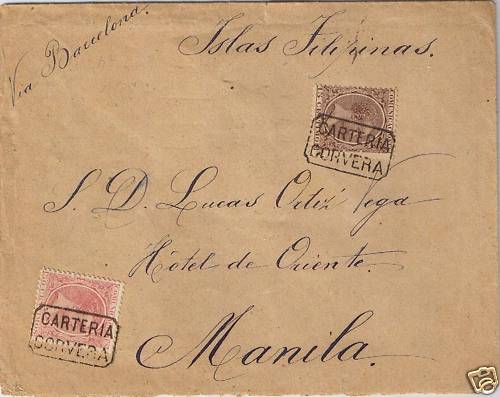 Via Barcelona.
Islas Filipinas.
CARTERIA
CORVERA
S. D. Lucas Ortiz Vega
Hôtel de Oriente.
Manila.
CARTERIA
CORVERA